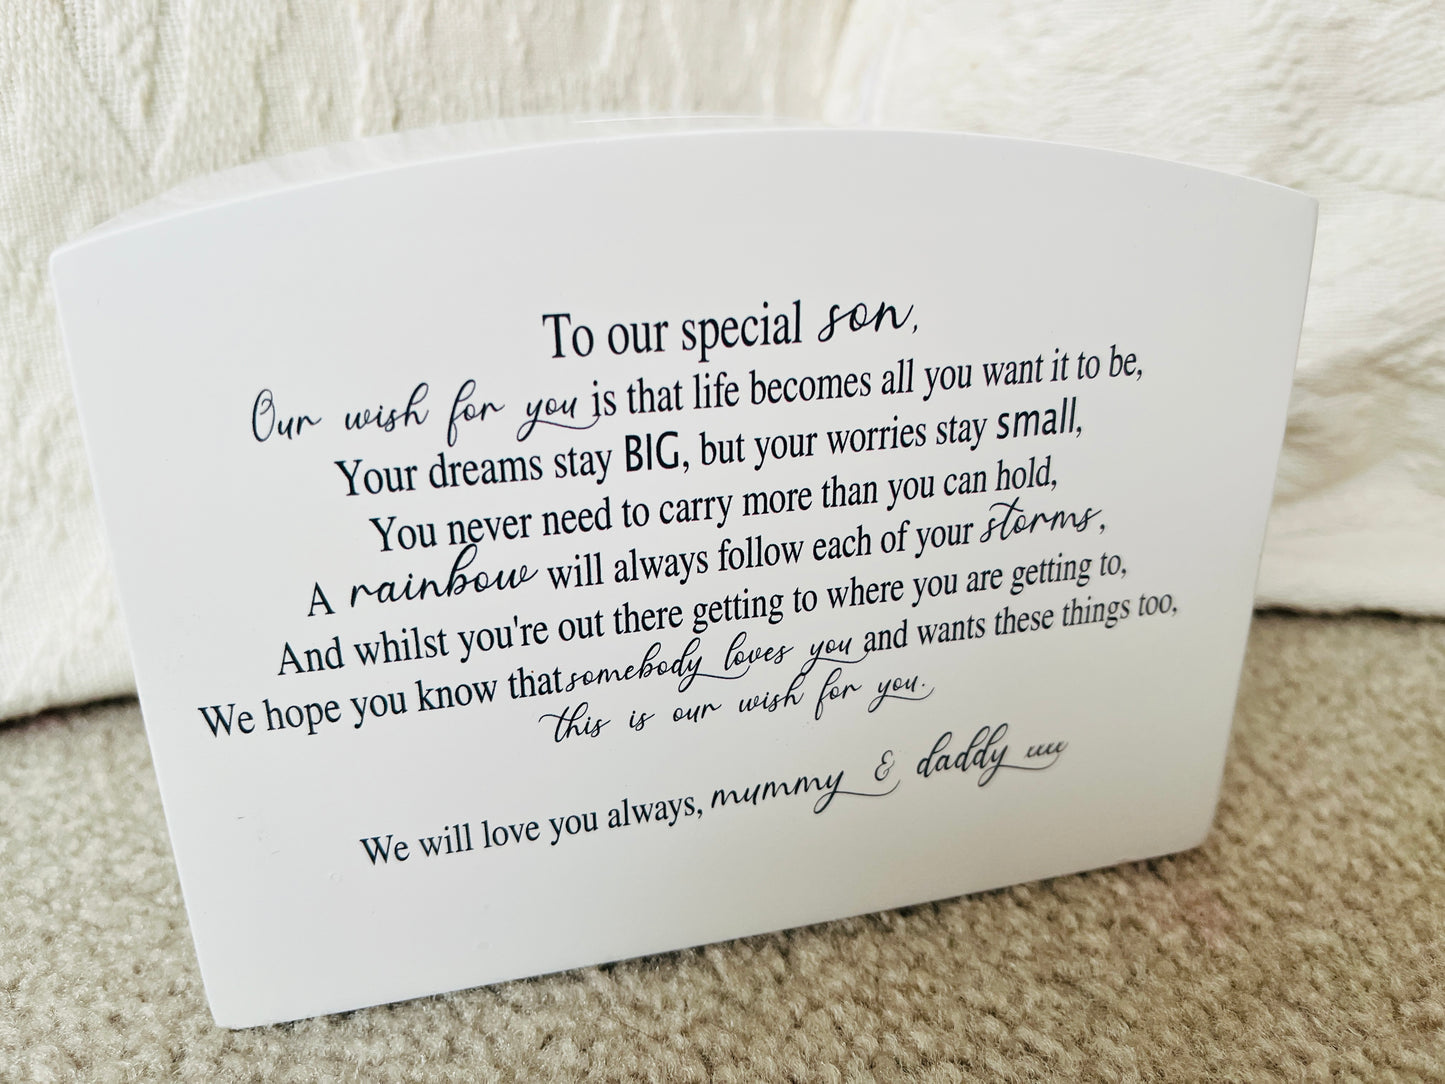 To our special son,
Our wish for you is that life becomes all you want it to be,
Your dreams stay BIG, but your worries stay small,
You never need to carry more than you can hold,
A rainbow will always follow each of your storms,
And whilst you're out there getting to where you are getting to,
We hope you know that somebody loves you and wants these things too,
this is our wish for you.
We will love you always, mummy & daddy